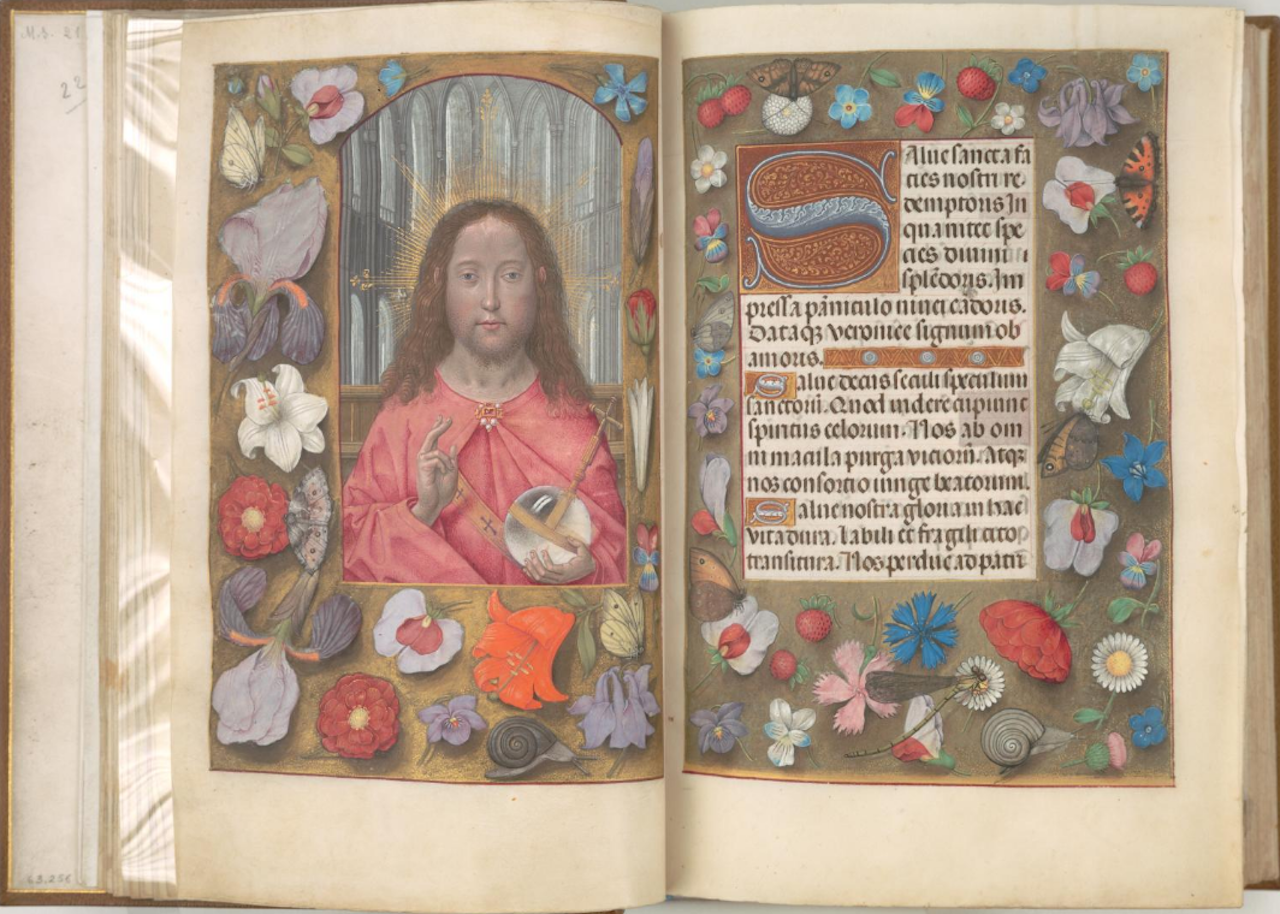 M.S. 21
22
63.256
Salue sancta fa
cies nostri re
demptoris In
qua nitet spe
cies diuini
splēdoris. Im
pressa pāniculo niuei cādoris.
Dataq; veronice signum ob
amoris.
Salue decus seculi speculum
sanctorū. Quod videre cupiunt
spiritus celorum. Nos ab om
ni macula purga viciorū. Atq;
nos consortio iunge beatorum.
Salue nostra gloria in hac
vita dura. Labili et fragili cito
transitura. Nos perduc ad patri